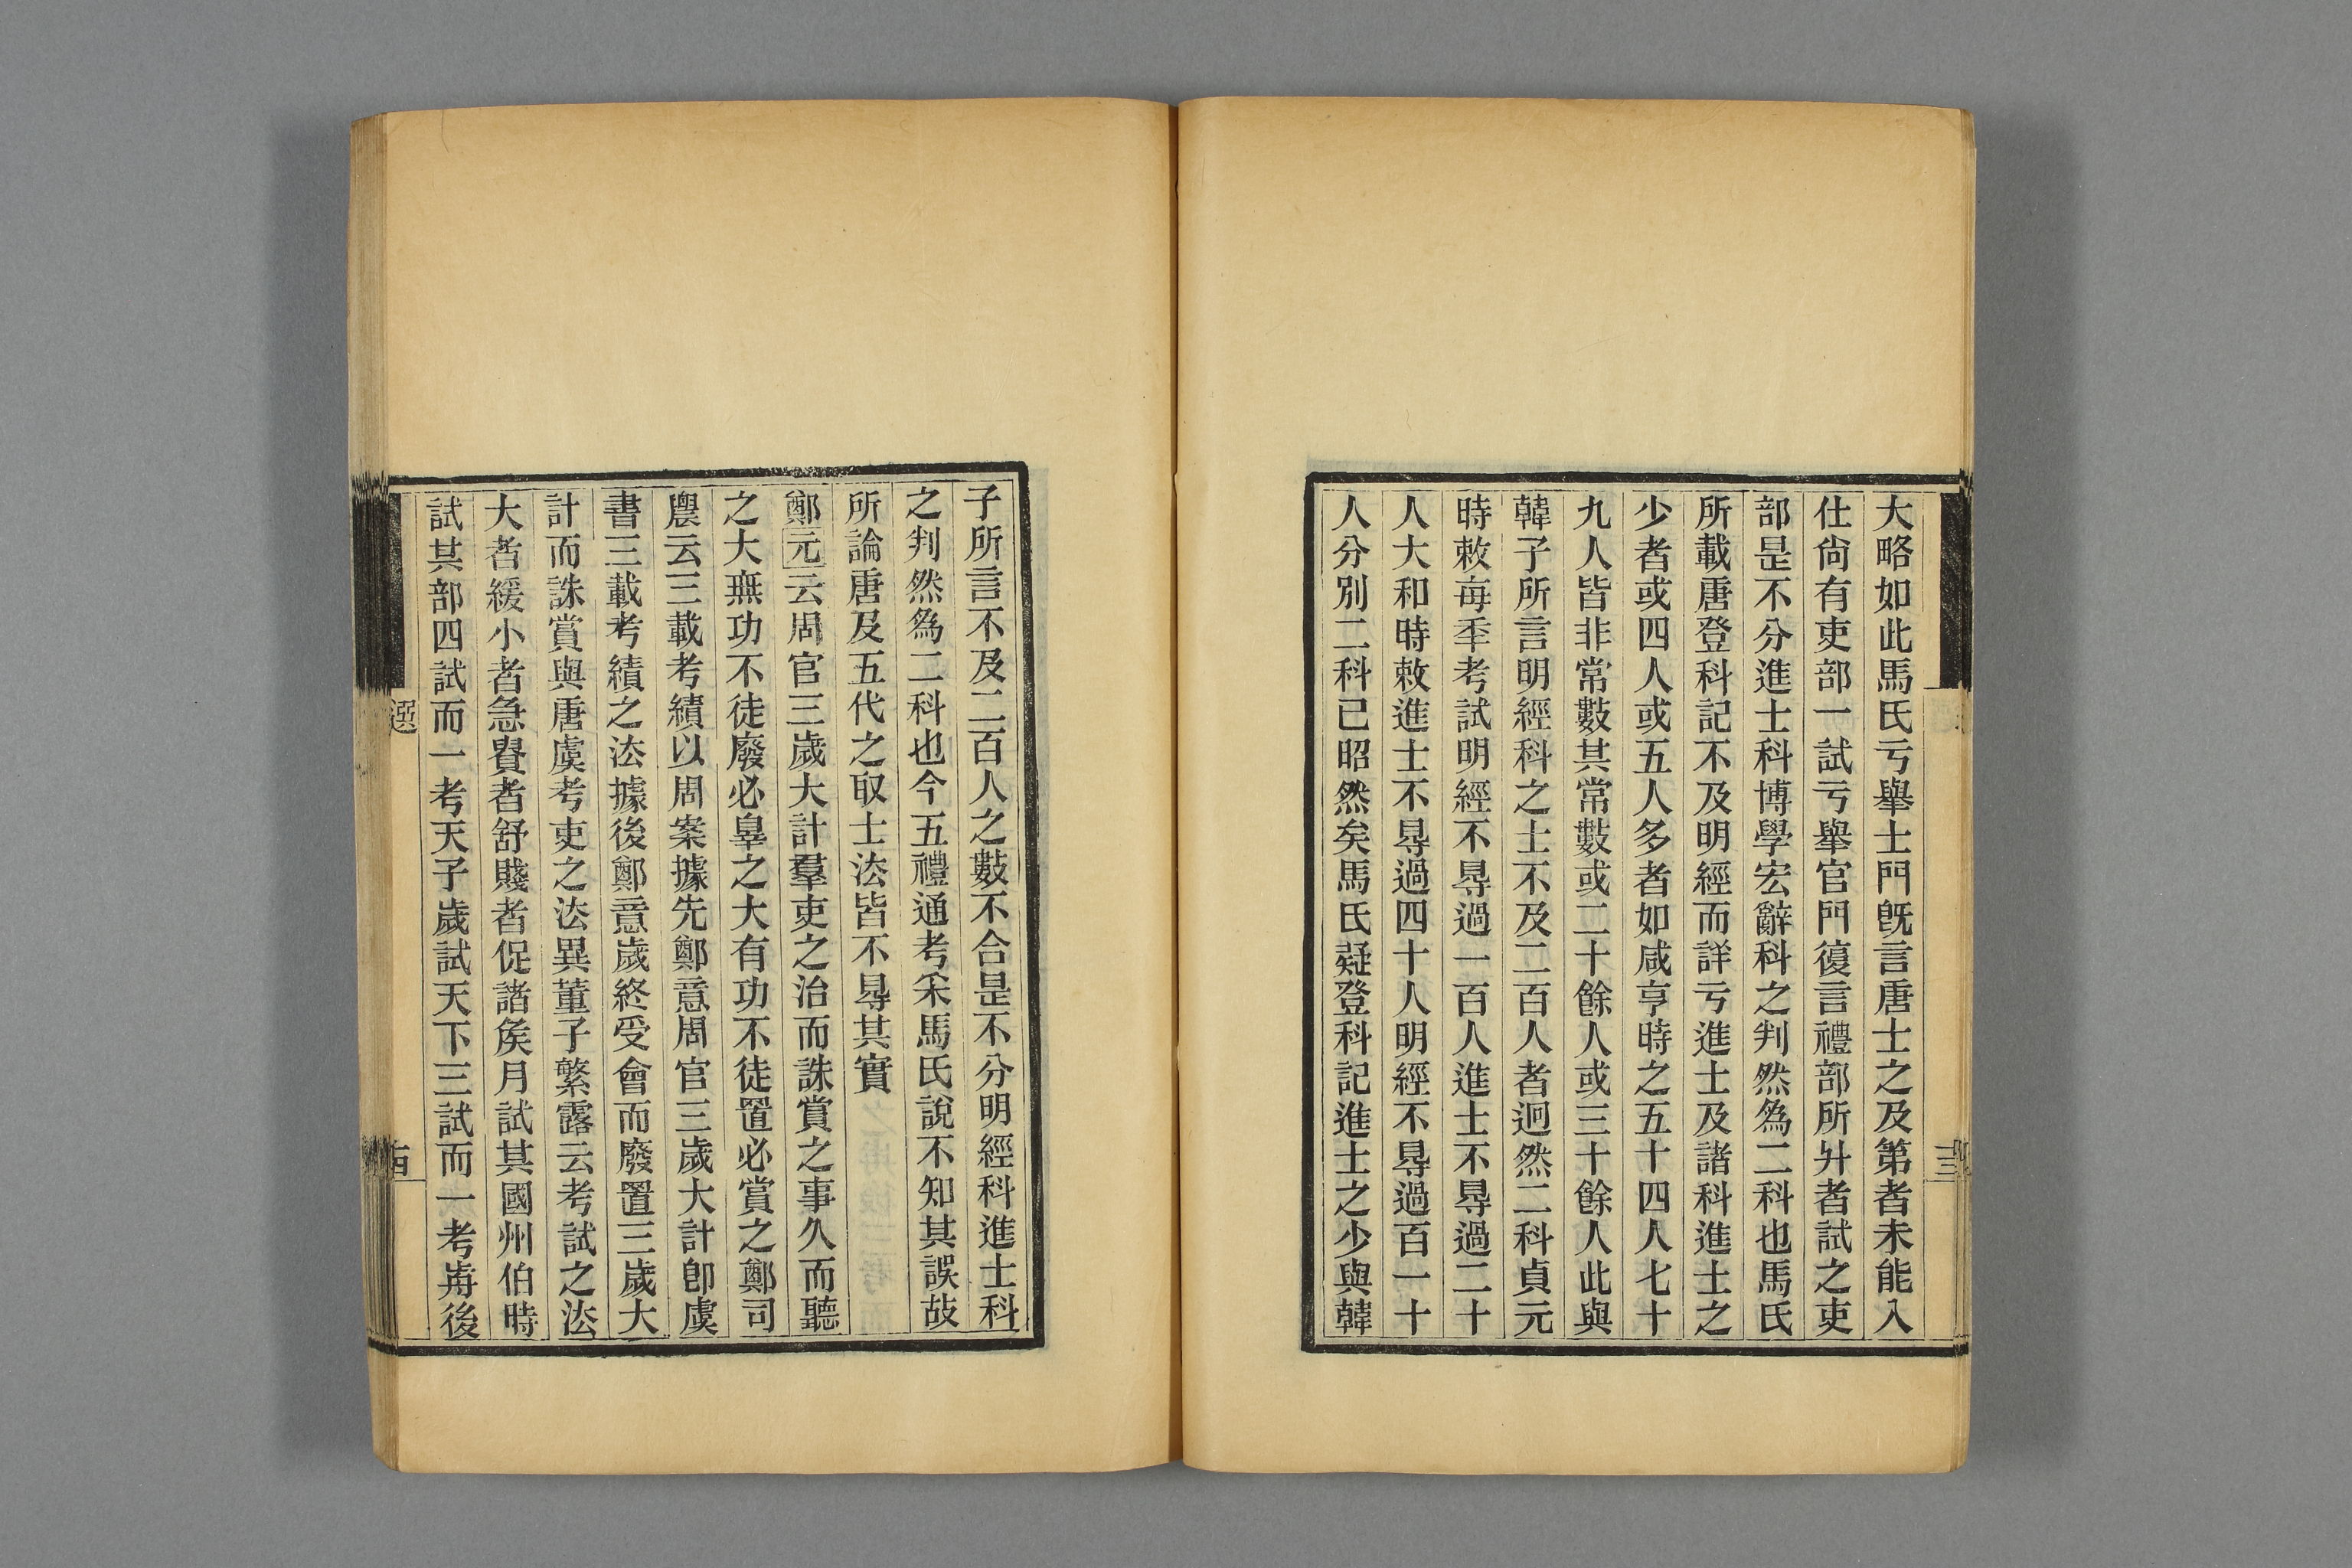 大略如此馬氏亏舉士門旣言唐士之及第者未能入
仕尙有吏部一試亏舉官門復言禮部所升者試之吏
部是不分進士科博學宏辭科之判然爲二科也馬氏
所載唐登科記不及明經而詳亏進士及諸科進士之
少者或四人或五人多者如咸亨時之五十四人七十
九人皆非常數其常數或二十餘人或三十餘人此與
韓子所言明經科之士不及二百人者迥然二科貞元
時敕每秊考試明經不㝵過一百人進士不㝵過二十
人大和時敕進士不㝵過四十人明經不㝵過百一十
人分別二科已昭然矣馬氏疑登科記進士之少與韓
子所言不及二百人之數不合是不分明經科進士科
之判然爲二科也今五禮通考采馬氏說不知其誤故
所論唐及五代之取士法皆不㝵其實
鄭元云周官三歲大計羣吏之治而誅賞之事久而聽
之大無功不徒廢必辠之大有功不徒置必賞之鄭司
農云三載考績以周案據先鄭意周官三歲大計卽虞
書三載考績之法據後鄭意歲終受會而廢置三歲大
計而誅賞與唐虞考吏之法異董子繁露云考試之法
大者緩小者急貴者舒賤者促諸矦月試其國州伯時
試其部四試而一考天子歲試天下三試而一考歬後
選